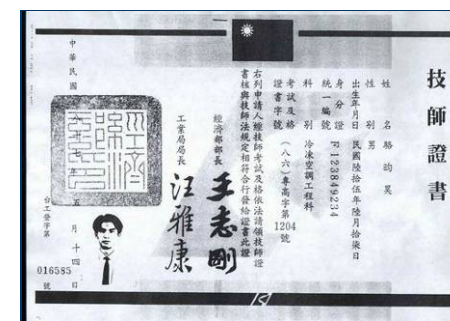 技師證書
姓名 駱昀昊
性別 男
出生年月日 民國陸拾伍年陸月拾柒日
身分證統一編號 F123849234
科別 冷凍空調工程科
考試及格證書字號 （八六）專高字第1204號
右列申請人經技師考試及格依法請領技師證
書核與技師法規定相符合行發給證書此證
經濟部部長 王志剛
工業局局長 汪雅康
經濟部印
中華民國 八十七年 五月十四日
台工登字第 016585 號